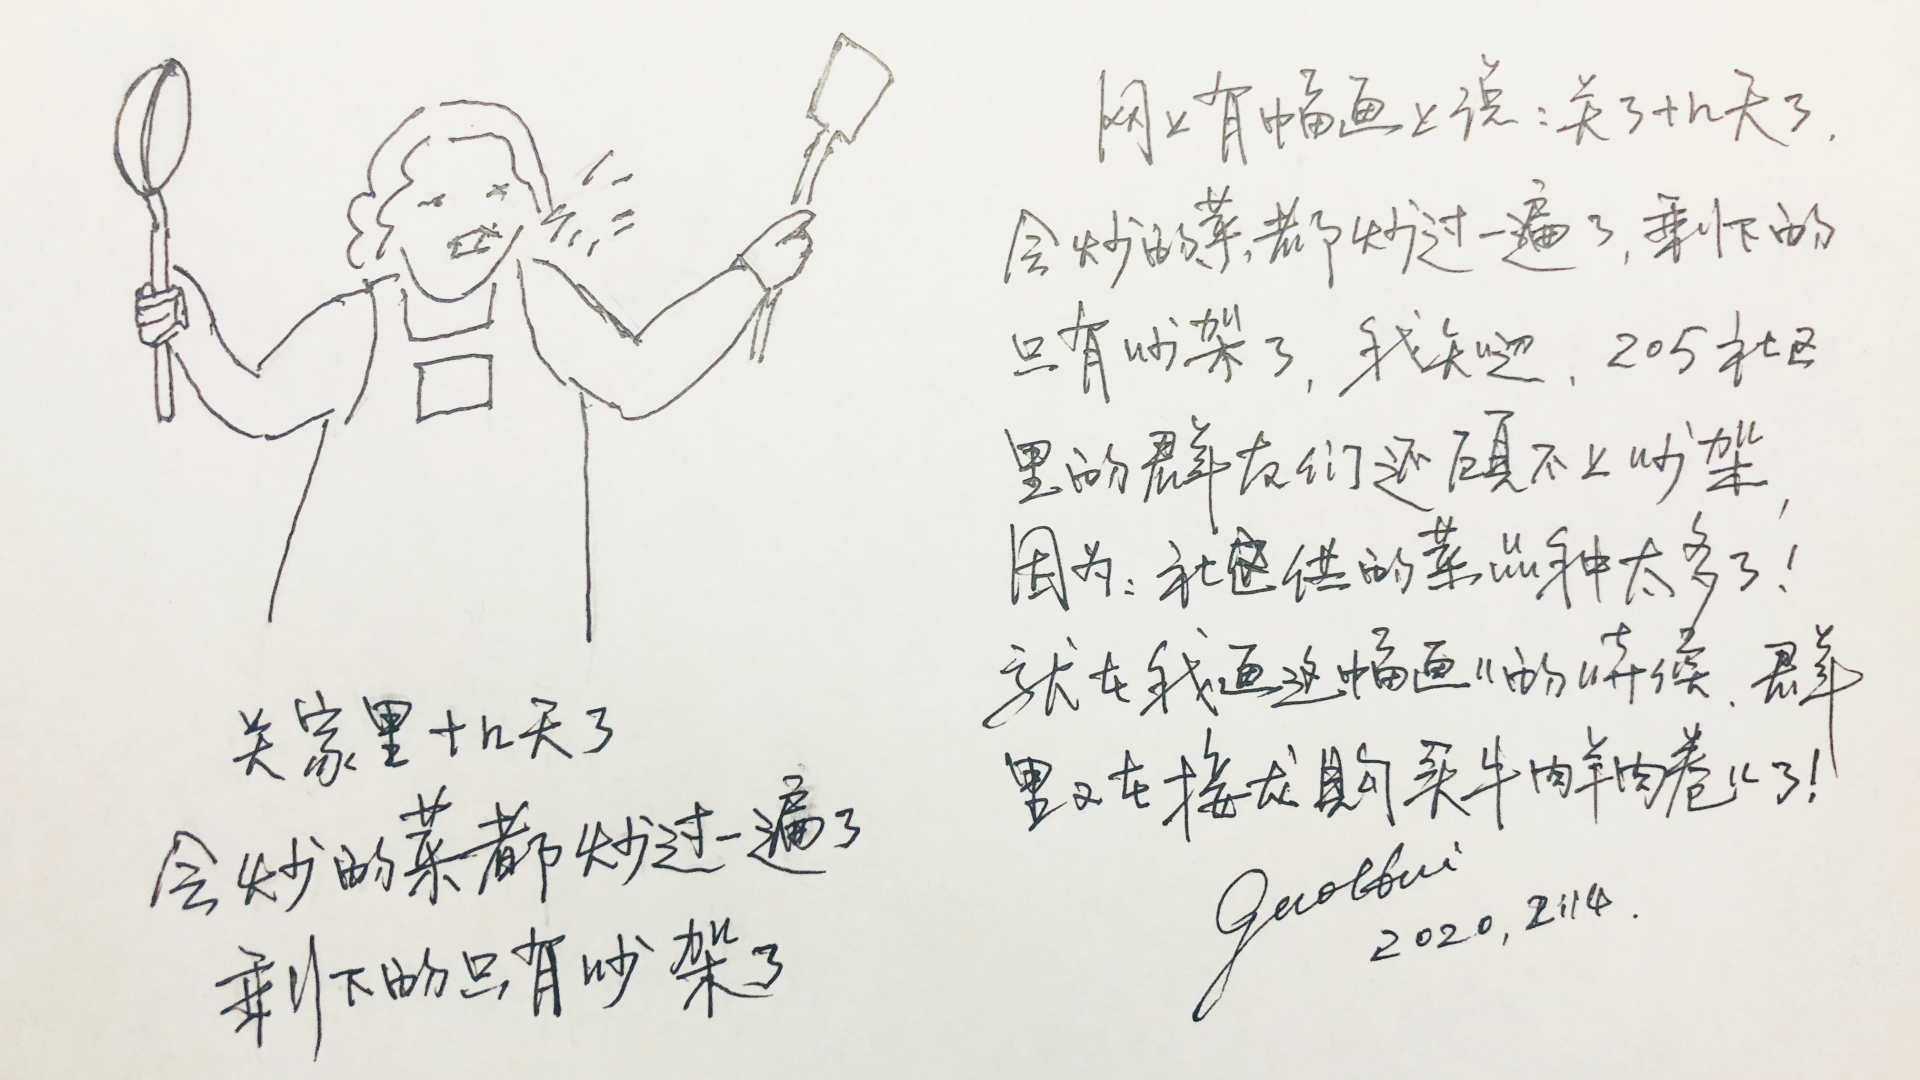 关家里十几天了
会炒的菜都炒过一遍了
剩下的只有吵架了
网上有幅画上说：关了十几天了，
会炒的菜都炒过一遍了，剩下的
只有吵架了，我知道，205社区
里的群友们还顾不上吵架，
因为：社区供的菜品种太多了！
就在我画这幅画的时候，群
里又在接龙购买牛肉羊肉卷了！
2020，2.14.